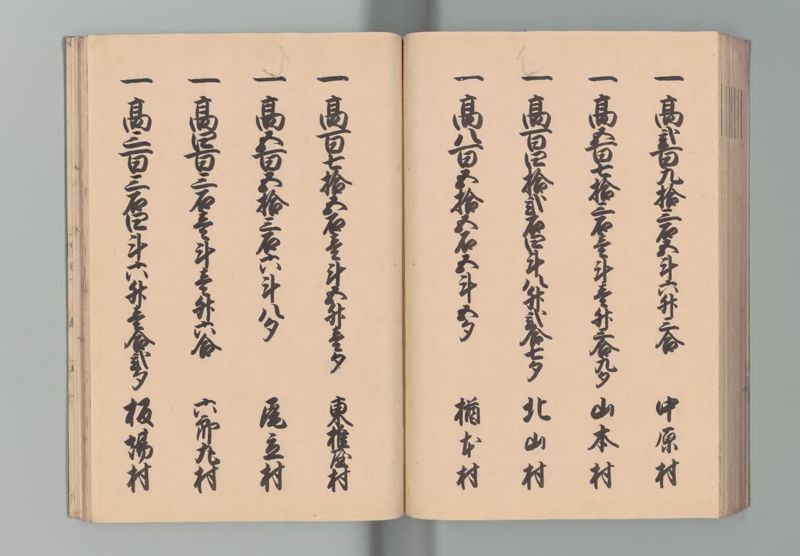 一高弐百九拾三石五斗六升三合 中原村
一高五百七拾三石壱斗壱升三合九夕 山本村
一高百四拾弐石四斗八升弐合七夕 北山村
一高八百五拾五石五斗五夕 楢本村
一高百七拾五石壱斗五升壱夕 東椎屋村
一高五百五拾三石六斗八夕 尾立村
一高四百三石壱斗壱升六合 六郎丸村
一高三百三石四斗六升壱合弐夕 板場村